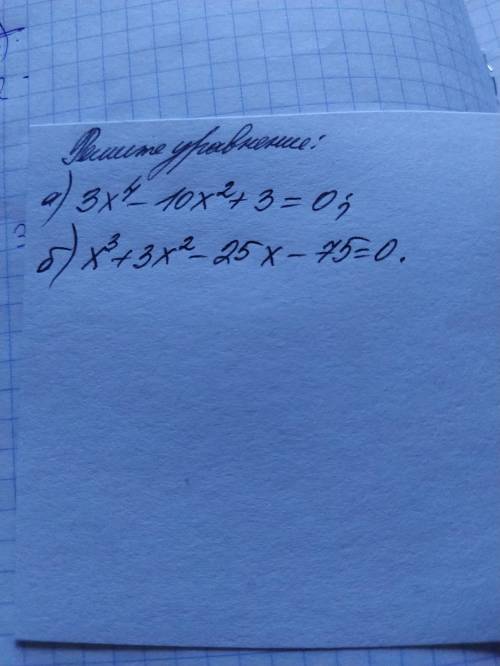 Решите уравнение:
а) 3x⁴ - 10x² + 3 = 0;
б) x³ + 3x² - 25x - 75 = 0.